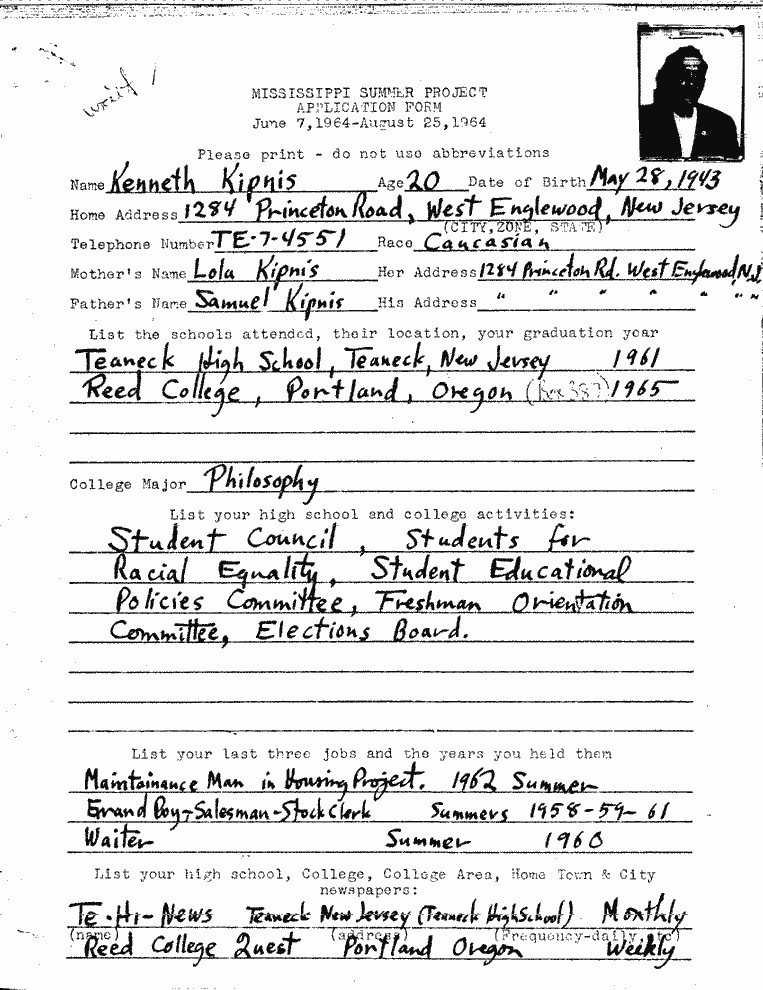 wait!
MISSISSIPPI SUMMER PROJECT
APPLICATION FORM
June 7,1964-August 25,1964
Please print - do not use abbreviations
Name Kenneth Kipnis Age 20 Date of Birth May 28, 1943
Home Address 1284 Princeton Road, West Englewood, New Jersey
(CITY,ZONE, STATE)
Telephone Number TE-7-4551 Race Caucasian
Mother's Name Lola Kipnis Her Address 1284 Princeton Rd. West Englewood, N.J.
Father's Name Samuel Kipnis His Address " " " " " " "
List the schools attended, their location, your graduation year
Teaneck High School, Teaneck, New Jersey 1961
Reed College, Portland, Oregon (Box 387) 1965
College Major Philosophy
List your high school and college activities:
Student Council, Students for
Racial Equality, Student Educational
Policies Committee, Freshman Orientation
Committee, Elections Board.
List your last three jobs and the years you held them
Maintainance Man in Housing Project. 1962 Summer
Errand Boy-Salesman-Stock Clerk Summers 1958-59-61
Waiter Summer 1960
List your high school, College, College Area, Home Town & City
newspapers:
Te-Hi-News Teaneck New Jersey (Teaneck High School) Monthly
(name) (address) (Frequency-daily, etc)
Reed College Quest Portland Oregon Weekly